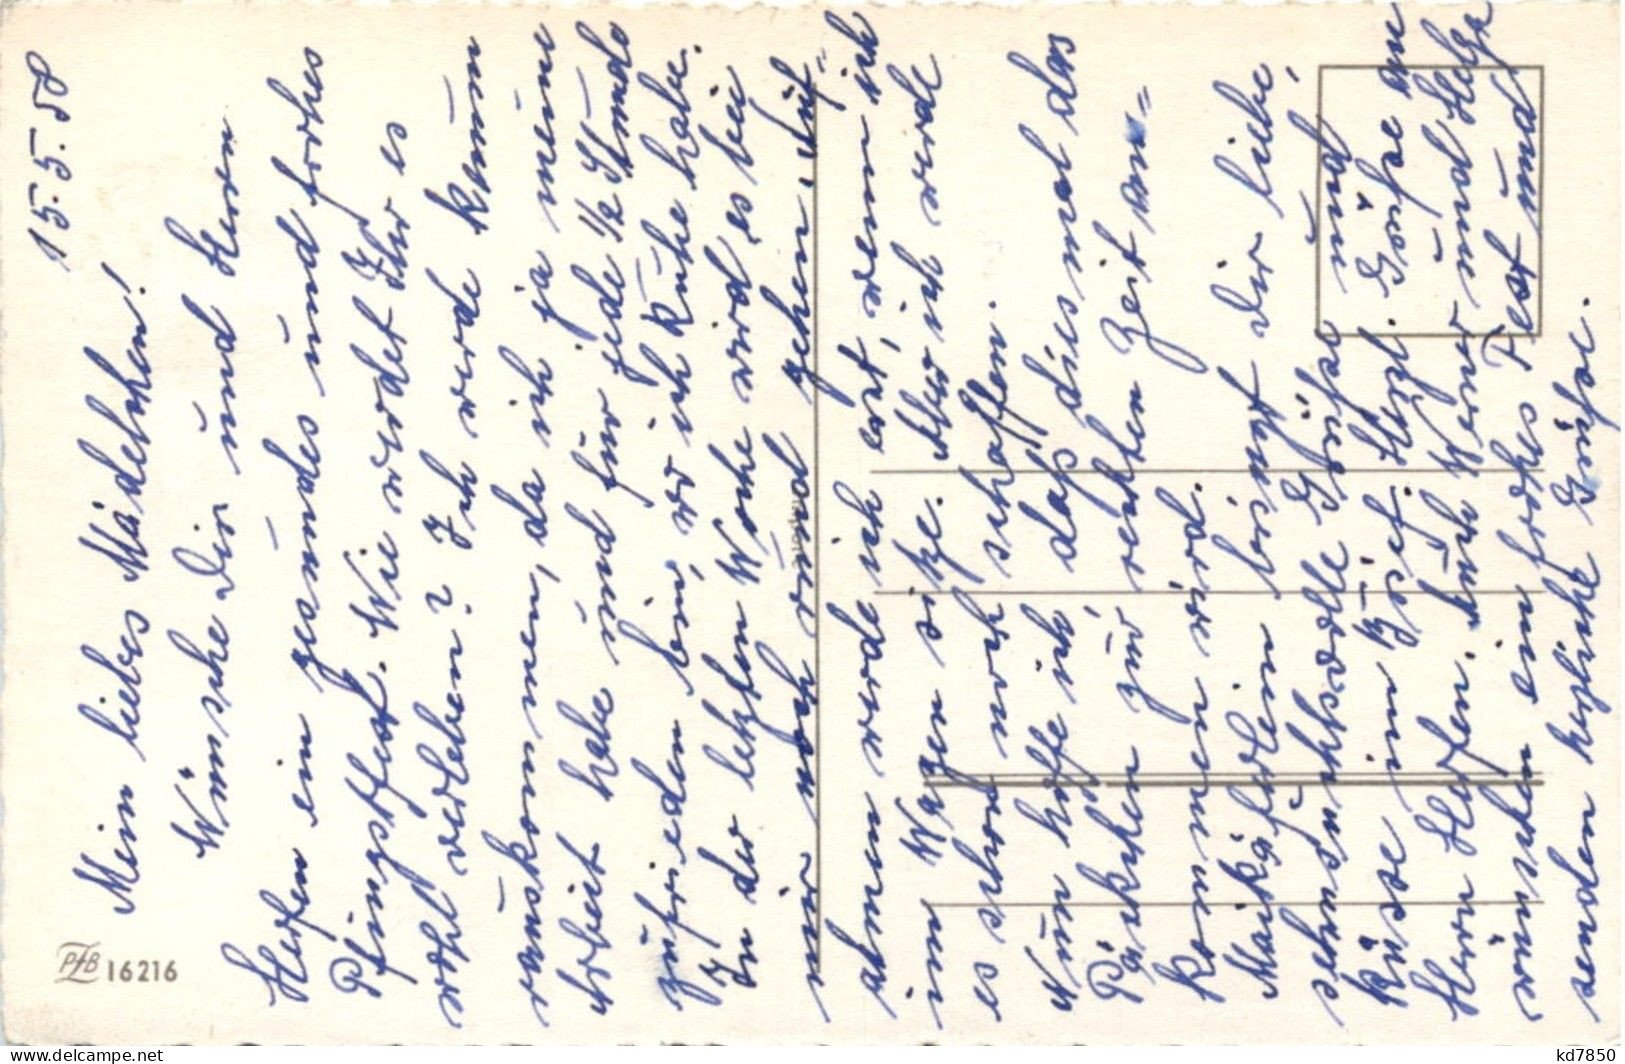 15.5.58
Mein liebes Mädelchen!
Wünsche Dir und Herrn
Hofen ein gesundes und frohes
Pfingstfest. Wie werdet Ihr es
wohl verleben? Ich werde kaum
rauskommen, da ich ja meine
Arbeit habe und für jede 1/2 Stunde
zufrieden bin, wo ich Ruhe habe.
In der letzten Woche wird es bei
mir noch rund gehen. Auf=
atmen werde ich erst, wenn ich
im Wagen sitze. Aber ich werde
es schon schaffen.
Nun hoffe ich, daß diesmal das
Päckchen zur rechten Zeit an=
kommen wird.
Maikäferlein bringt Dir liebe,
sehnsuchtsvolle Grüße und
Küsse im Grüße an
Herrn Hofen.
wünschen ein frohes Fest und
senden herzliche Grüße.
PFB 16216
kd7850